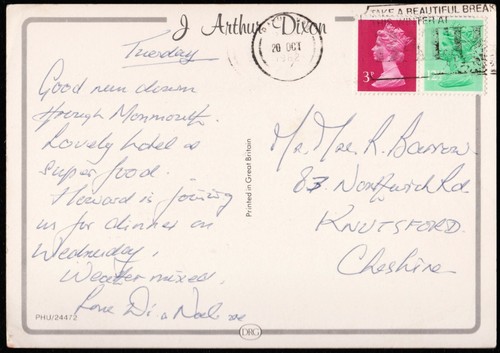 J Arthur Dixon
Tuesday
Good run down
through Monmouth.
Lovely hotel &
super food.
Howard is joining
us for dinner on
Wednesday.
Weather mixed.
Love Di & Noel xx
PHU/24472
Printed in Great Britain
DRG
20 OCT
1982
TAKE A BEAUTIFUL BREAK
THIS WINTER AT
3P
Mr. Mrs. R. Barrow.
83 Northwich Rd
KNUTSFORD
Cheshire